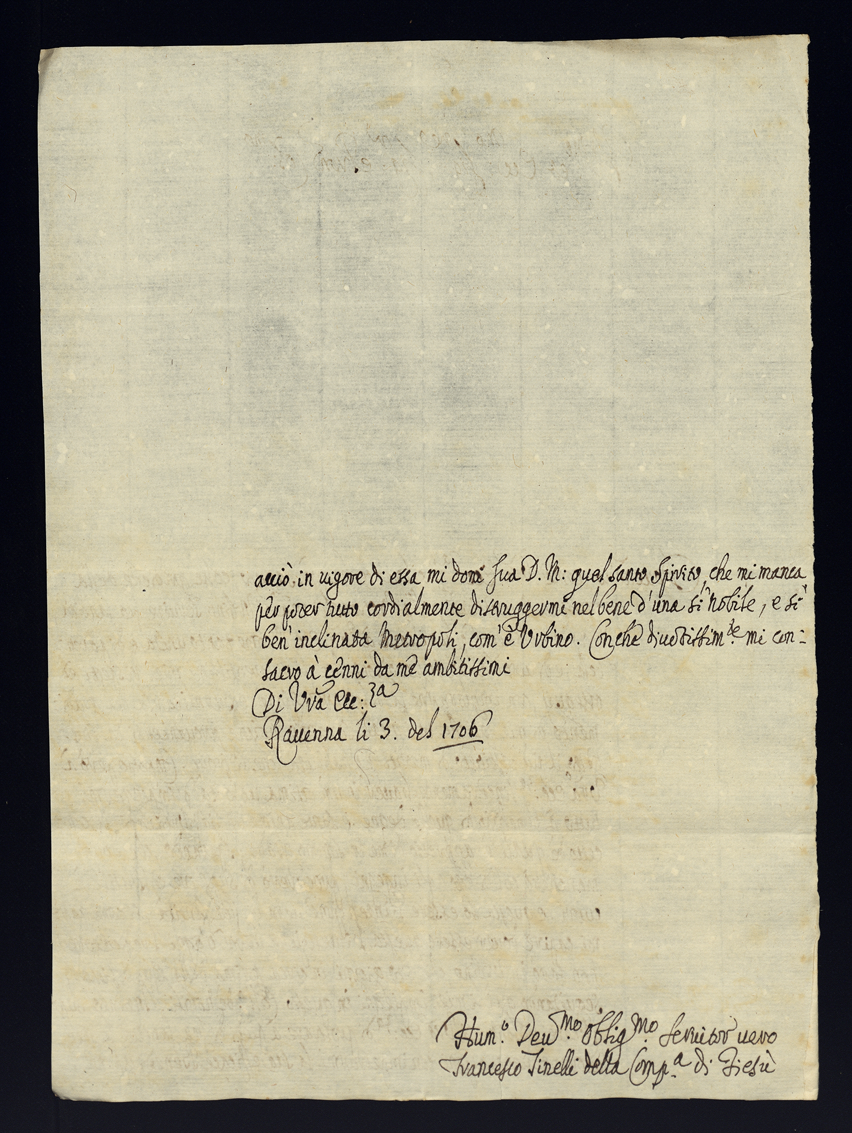 acciò in vigore di essa mi doni Sua D. M: quel santo Spirito, che mi manca
per poter tutto cordialmente distruggermi nel bene d'una sì Nobile, e sì
ben' inclinata Metropoli, com' è Urbino. Con che divotissim.te mi con-
sacro à cenni da me ambitissimi
Di Vra Ecc:za
Ravenna li 3. del 1706
Hum.o Deu.mo Obblig.mo Servitor vero
Francesco Tinelli della Comp.a di Giesù